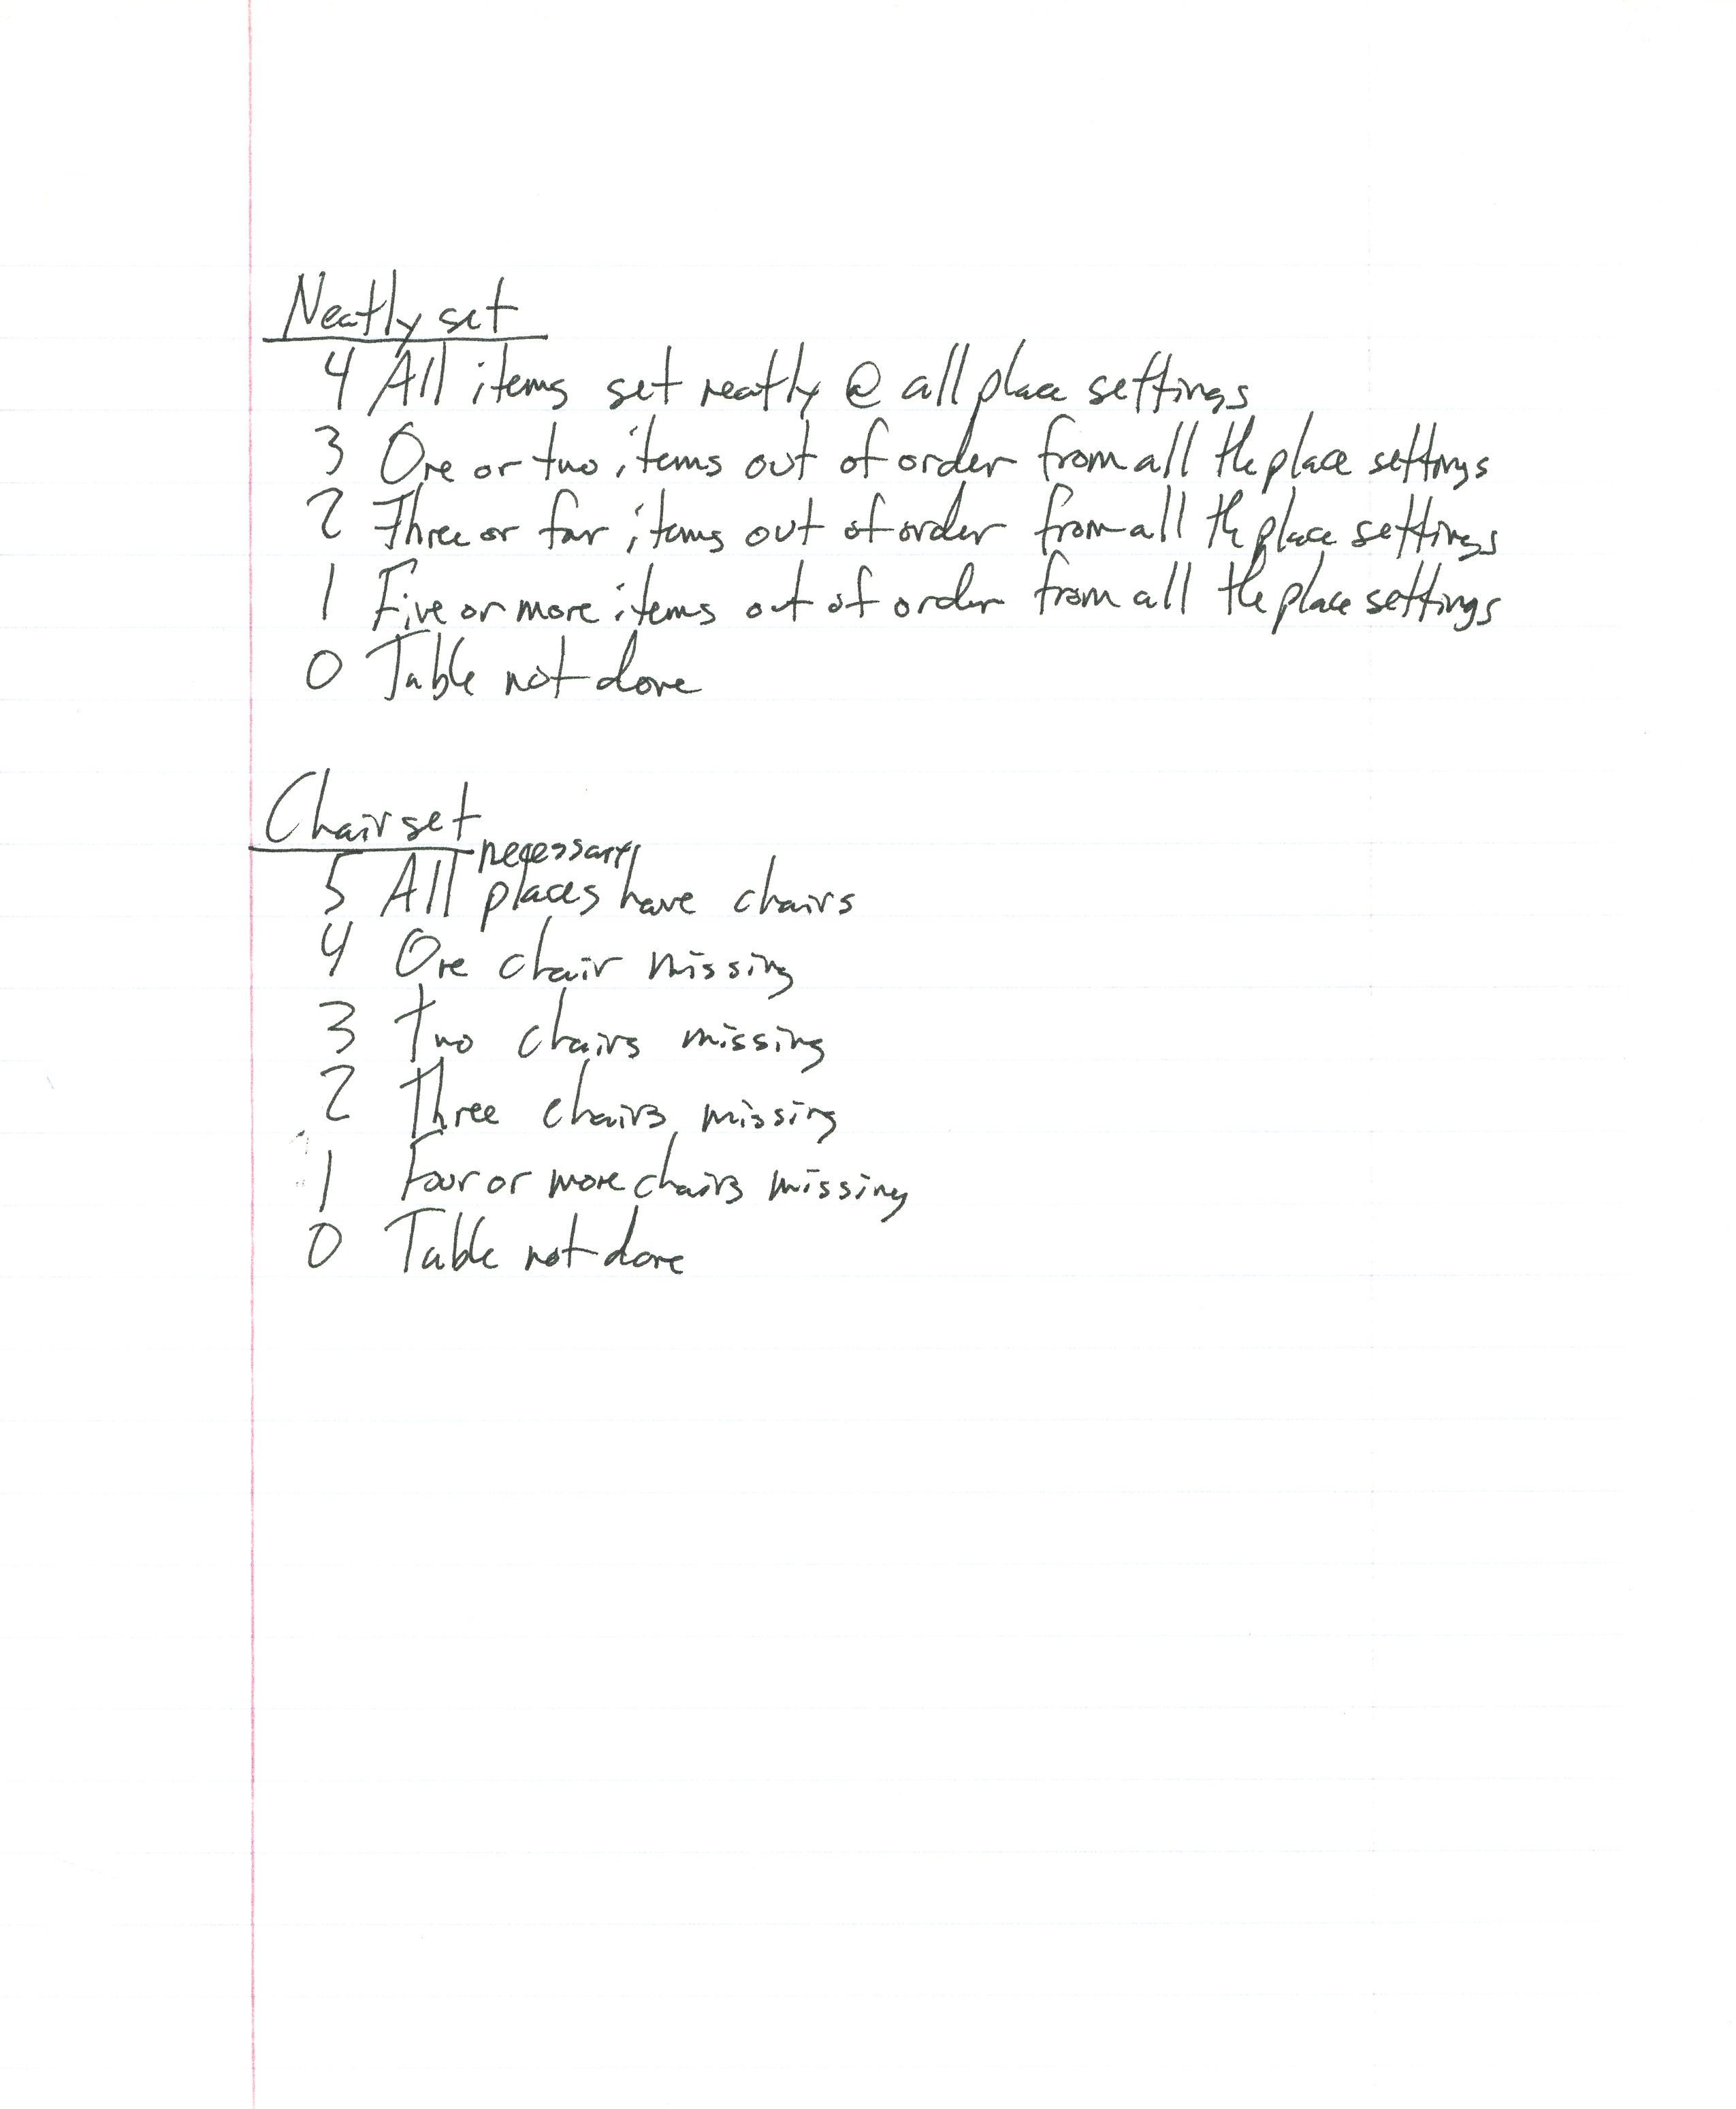 Neatly set
4 All items set neatly @ all place settings
3 One or two items out of order from all the place settings
2 Three or four items out of order from all the place settings
1 Five or more items out of order from all the place settings
0 Table not done
Chair set
necessary
5 All places have chairs
4 One chair missing
3 two chairs missing
2 three chairs missing
1 Four or more chairs missing
0 Table not done